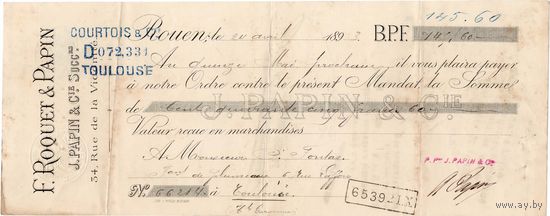 F. ROQUET & PAPIN
J. PAPIN & Cie Succrs
54, Rue de la Vicomté
COURTOIS &
D072,331
TOULOUSE
145.60
Rouen, le 20 avril 189 B.P.F. 145,60
Au quinze Mai prochain il vous plaira payer
à notre Ordre contre le présent Mandat, la Somme
de Cent quarante cinq francs 60
J. PAPIN & CIE
Valeur reçue en marchandises
A Monsieur
de plumeaux 6 rue
No 66214 à Toulouse
Hte Garonne
P. Pon J. PAPIN & Cie
65392LX
www.ay.by